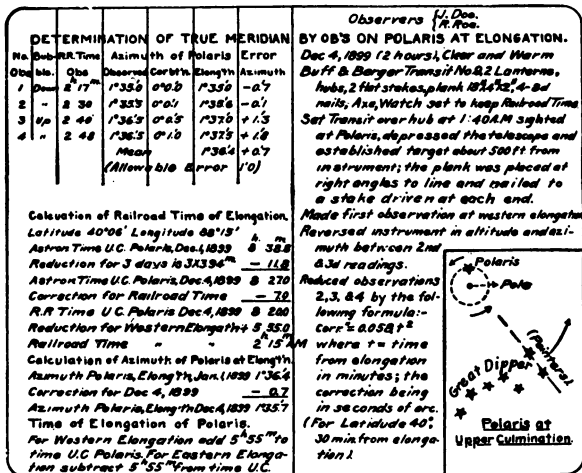 Observers {J. Doe.
R. Roe.
DETERMINATION OF TRUE MERIDIAN BY OB'S ON POLARIS AT ELONGATION.
No. Bub- R.R. Time Azimuth of Polaris Error
Obs ble. Obs Observed Corb'n. Elong'n Azimuth
h m
1 Down 2 17 1°35'.0 0°0'.0 1°35'.0 -0.7
2 " 2 30 1°35'.5 0°0'.1 1°35'.6 -0.1
3 Up 2 40 1°36'.5 0°0'.5 1°37'.0 +1.3
4 " 2 48 1°36'.5 0°1'.0 1°37'.5 +1.8
Mean 1°36'.4 +0.7
(Allowable Error 1'.0)
Calcuation of Railroad Time of Elongation.
Latitude 40°06' Longitude 88°13' h. m
Astron Time U.C. Polaris, Dec.1, 1899 8 38.8
Reduction for 3 days is 3X3.94m - 11.8
Astron Time U.C. Polaris, Dec.4, 1899 8 27.0
Correction for Railroad Time - 7.0
R.R Time U.C. Polaris Dec 4, 1899 8 20.0
Reduction for Western Elongat'n + 5 55.0
Railroad Time " " 2h 15m AM
Calculation of Azimuth of Polaris at Elongt'n.
Azimuth Polaris, Elong't'n, Jan.1, 1899 1°36'.4
Correction for Dec 4, 1899 - 0.7
Azimuth Polaris, Elongt'n Dec 4, 1899 1°35'.7
Time of Elongation of Polaris.
For Western Elongation add 5h55m to
time U.C. Polaris. For Eastern Elonga-
tion subtract 5h55m from time U.C.
Dec 4, 1899 (2 hours), Clear and Warm
Buff & Berger Transit No. 8, 2 Lanterns,
hubs, 2 flat stakes, plank 4-8d
nails; Axe, Watch set to keep Railroad Time
Set Transit over hub at 1:40 A.M sighted
at Polaris, depressed the telescope and
established target about 500 ft from
instrument; the plank was placed at
right angles to line and nailed to
a stake driven at each end.
Made first observation at western elongation
Reversed instrument in altitude and azi-
muth between 2nd
& 3d readings.
Reduced observations
2, 3, & 4 by the fol-
lowing formula:-
Corr'n = 0.058 t²
where t = time
from elongation
in minutes; the
correction being
in seconds of arc.
(For Latidude 40°,
30 min. from elonga-
tion).
Polaris
Pole
(Pointers)
Great Dipper
Polaris at
Upper Culmination.